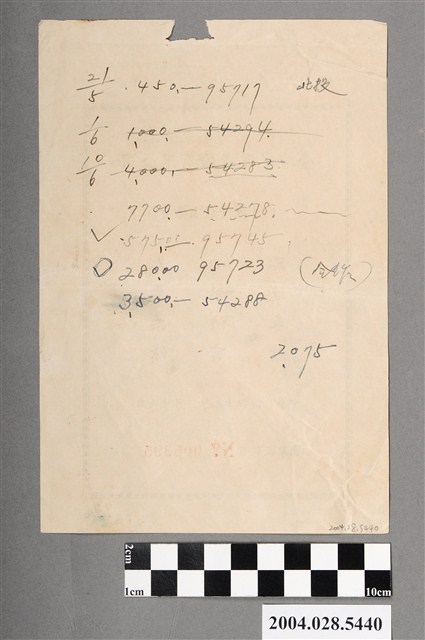 21/5 . 450.— 95717 北投
1/6 1,000.— 54294.
10/6 4,000.— 54283.
7700— 54278.
✓ 5750 95745.
28000 95723
3,500.— 54288
2075
2004.28.5440
2cm
1cm 10cm
2004.028.5440